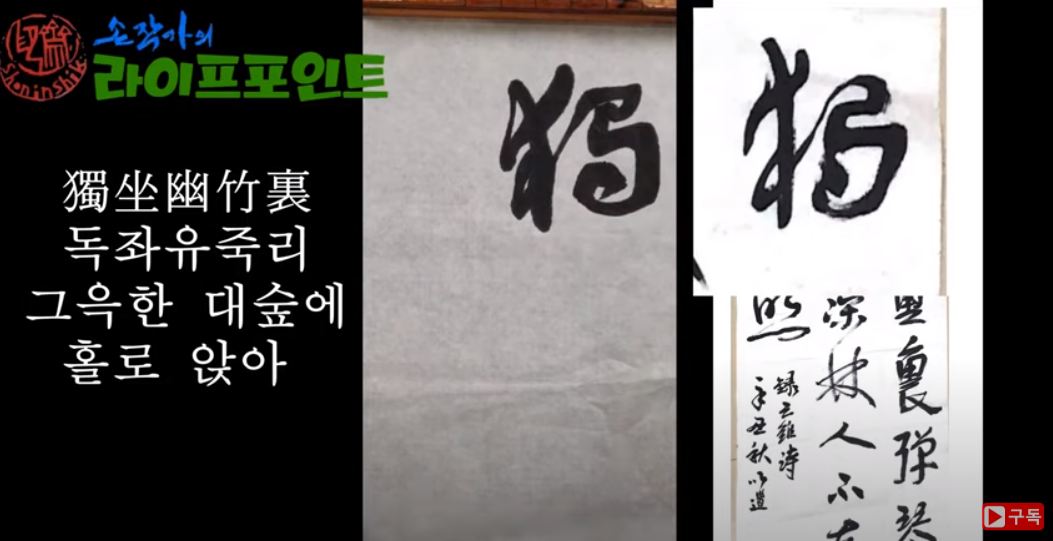 손작가의
라이프포인트
Shoninshik
獨坐幽竹裏
독좌유죽리
그윽한 대숲에
홀로 앉아
獨
獨
裏彈琴
深林人不
照
錄王維詩
辛丑秋
구독